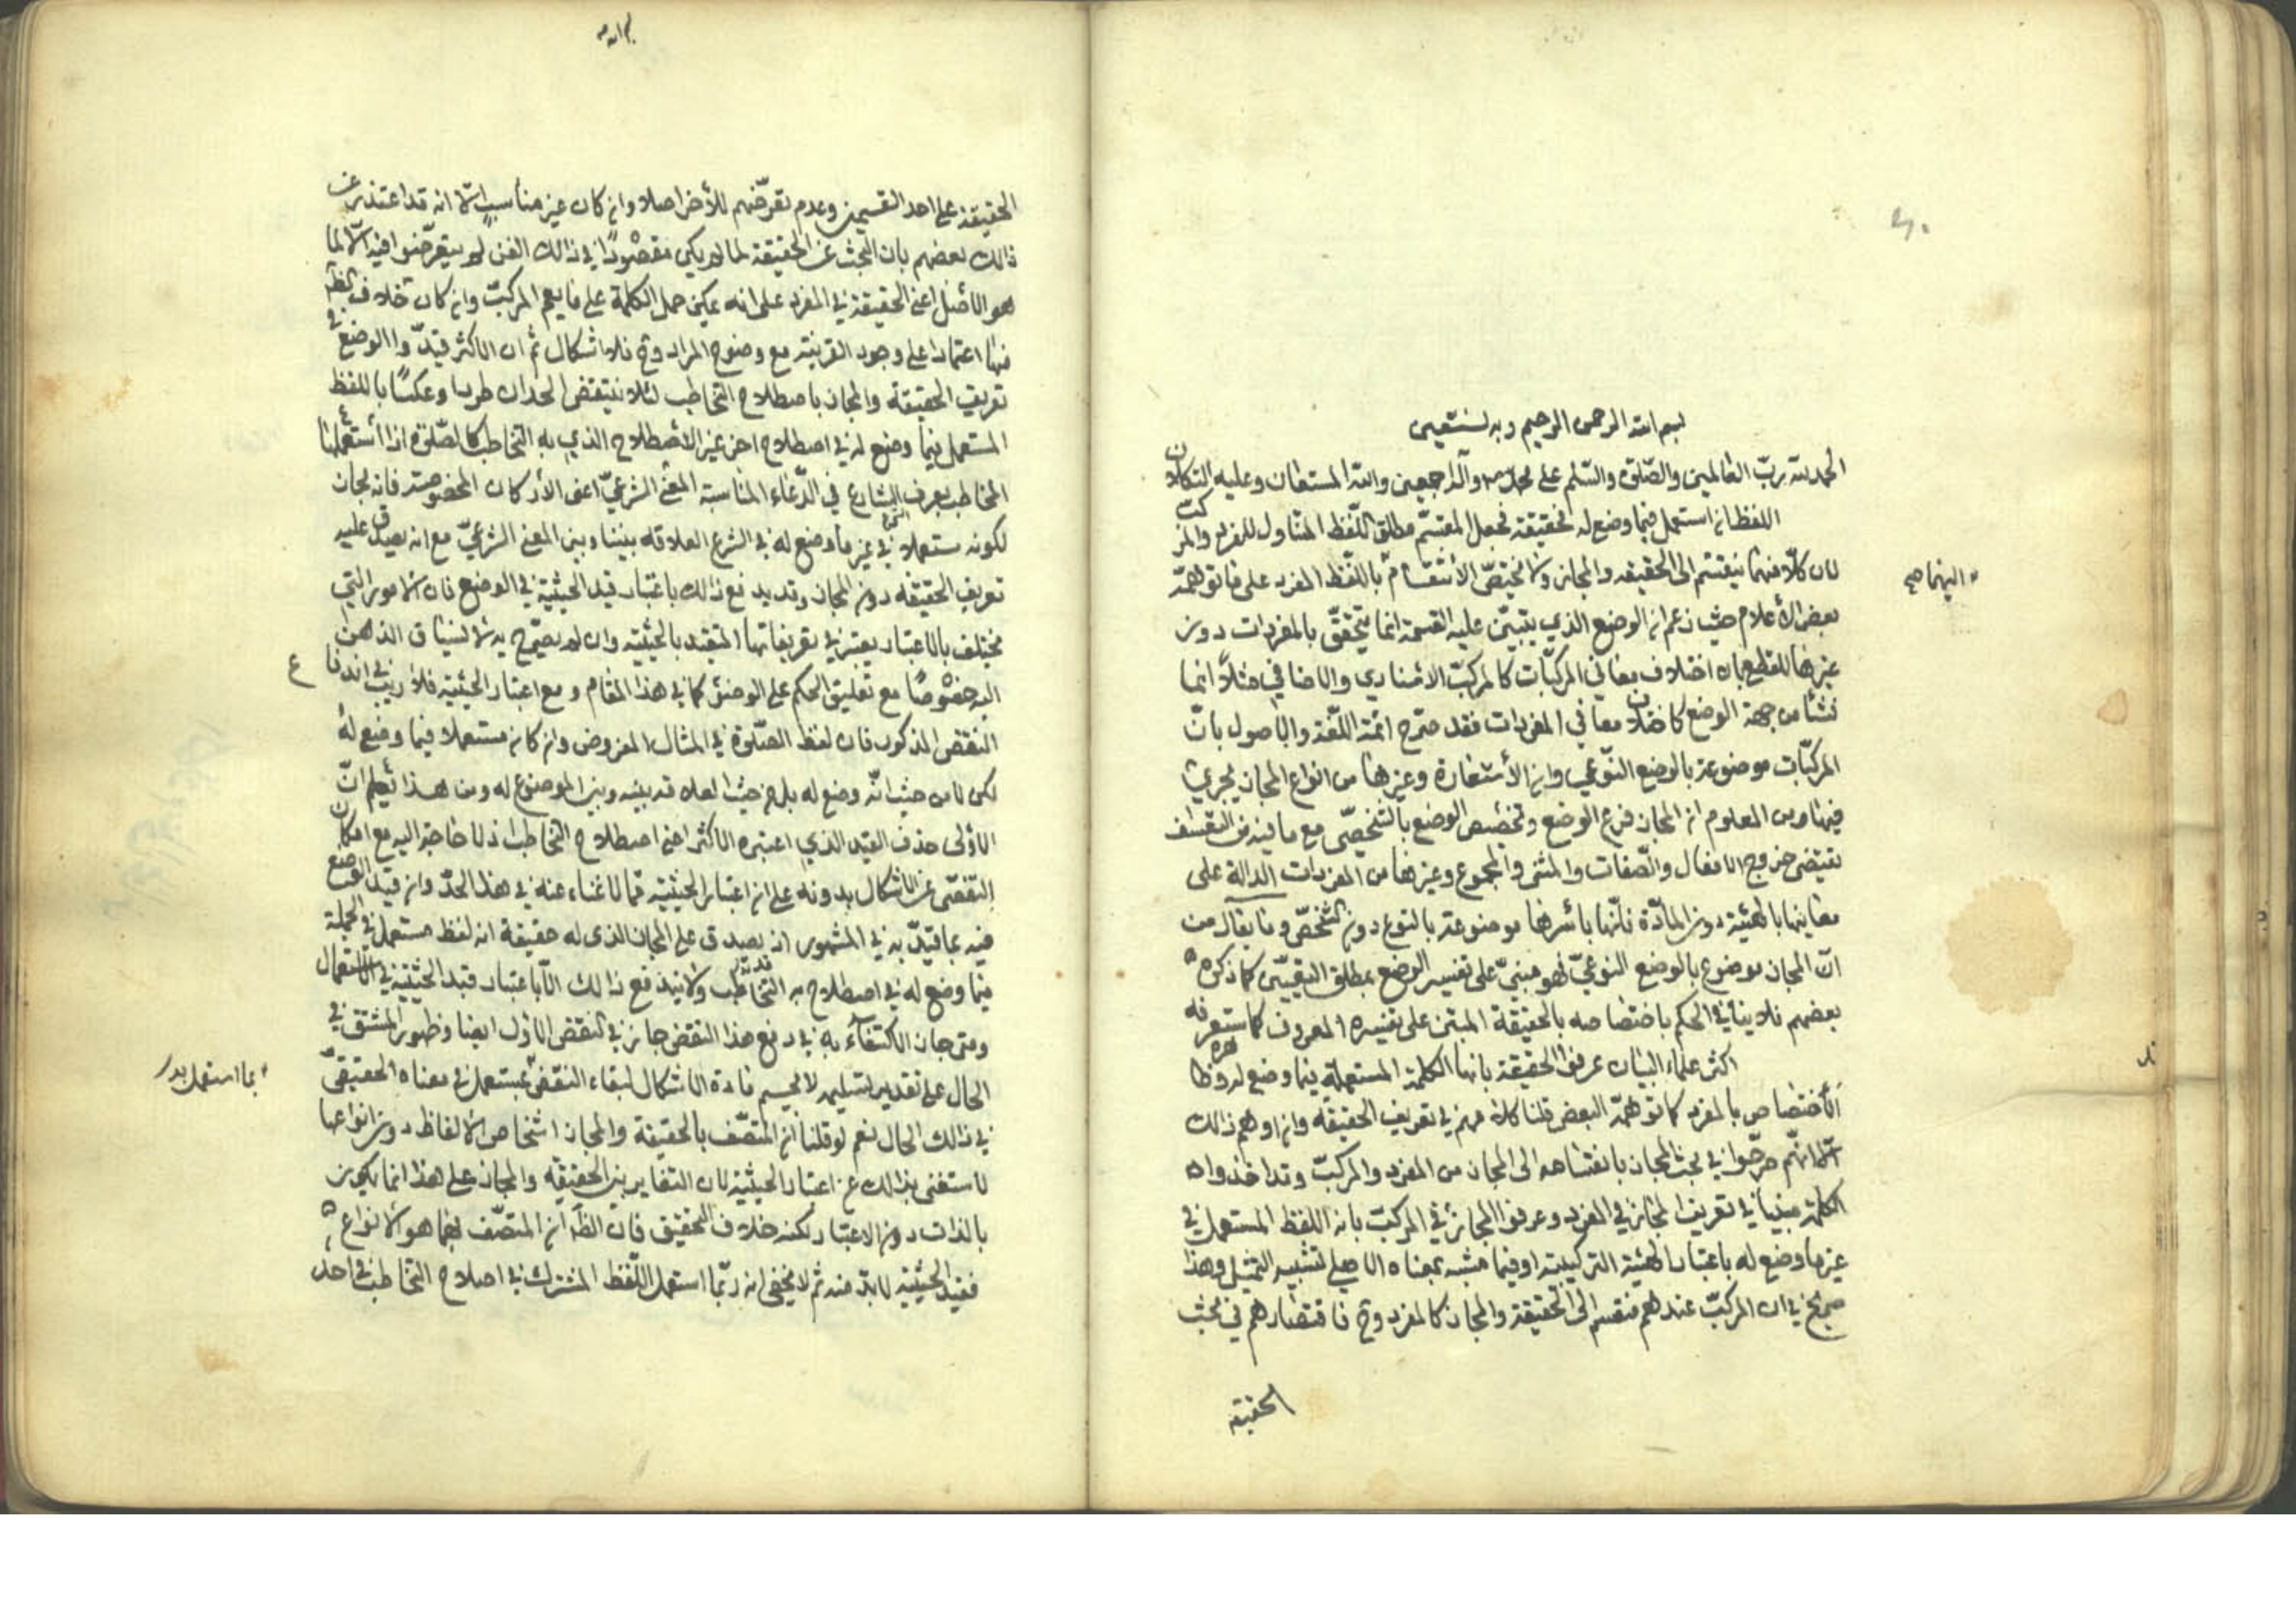 بسم الله الرحمن الرحيم وبه نستعين
الحمد لله ربّ العالمين والصّلوة والسّلم على محمّد وآله اجمعين والله المستعان وعليه التكلان
اللفظ ان استعمل فيما وضع له فحقيقة فجعل المقسّم مطلق اللّفظ المتناول للمفرد والمركّب
لان كلّا منهما ينقسم الى الحقيقه والمجاز ولا يختصّ الأنقسام باللّفظ المفرد على ما توهّمه
اليهما صح
بعض الأعلام حيث زعم ان الوضع الذي يبتني عليه القسمة انما يتحقّق بالمفردات دون
غيرها للقطع بان اختلاف معاني المركّبات كالمركّب الاسنادي والاضافي مثلاً انما
نشأ من جهة الوضع كاختلاف معاني المفردات فقد صرّح ائمّة اللّغة والاصول بانّ
المركّبات موضوعة بالوضع النّوعي وان الأستعارة وغيرها من انواع المجاز يجري
فيها ومن المعلوم ان المجاز فرع الوضع وتخصيص الوضع بالشّخصّي مع ما فيه من التعسّف
يقتضي خروج الافعال والصّفات والمثنى والمجموع وغيرها من المفردات الدالة على
معانيها بالهيئة دون المادّة فانّها بأسرها موضوعة بالنوع دون الشّخصّ وما يقال من
انّ المجاز موضوع بالوضع النوعيّ فهو مبنيّ على تفسير الوضع بمطلق التعيّين كما ذكره
بعضهم فلا ينافي الحكم باختصاصه بالحقيقة المبتني على تفسيره المعروف كما ستعرفه
اكثر علماء البيان عرفوا الحقيقة بانها الكلمة المستعملة فيما وضع له وظاهره
الأختصاص بالمفرد كما توهّمه البعض قلنا كلامهم في تعريف الحقيقه وان اوهم ذالك
الّا انّهم صرّحوا في بحث المجاز بانقسامه الى المجاز من المفرد والمركّب وقد اخذوا
الكلمة جنسا في تعريف المجاز في المفرد وعرفوا المجاز في المركب بانه اللفظ المستعمل في
غير ما وضع له باعتبار الهيئة التركيبية او فيما شبه بمعناه الاصلي تشبيه التمثيل وهذا
صريح في ان المركّب عندهم منقسم الى الحقيقة والمجاز كالمفرد وح فاقتصارهم في بحث
الحقيقة
الحقيقة على احد القسمين وعدم تعرّضهم للأخر اصلا وان كان غير مناسب الّا انه قد اعتذر عن
ذالك بعضهم بان البحث عن الحقيقة لما لم يكن مقصودًا في ذالك الفن لم يتعرّضوا فيه الّا لما
هو الأصل اعني الحقيقة في المفرد على انه يمكن حمل الكلمة على ما يعم المركبّ وان كان خلاف الظ
منها اعتمادا على وجود القرينة مع وضوح المراد وح فلا اشكال ثم ان الاكثر قيّدوا الوضع في
تعريف الحقيقة والمجاز باصطلاح التخاطب لئلا ينتقض الحدان طردا وعكسًا باللفظ
المستعمل فيما وضع له في اصطلاح اخر غير الأصطلاح الذي به التخاطب كالصّلوة اذا أستعملها
المخاطب بعرف الشارع في الدّعاء لمناسبة المعنى الشرعيّ اعني الأركان المخصوصة فانه مجاز
لكونه مستعملا في غير ما وضع له في الشرع لعلاقه بينه وبين المعنى الشرعيّ مع انه يصدق عليه
تعريف الحقيقه دون المجاز وقد يدفع ذالك باعتبار قيد الحيثية في الوضع فان الامور التي
يختلف بالاعتبار يعتبر في تعريفاتها التقيد بالحيثيه وان لم يصرّح به لانسياق الذهن
اليه خصوصًا مع تعليق الحكم على الوصف كما في هذا المقام ومع اعتبار الحيثية فلا ريب في اندفاع
النقض المذكور فان لفظ الصّلوة في المثال المفروض وان كان مستعملا فيما وضع له
لكن لا من حيث انّه وضع له بل من حيث العلاقه بينه وبين الموضوع له ومن هذا يعلم انّ
الأولى حذف القيد الذي اعتبره الاكثر اعني اصطلاح التخاطب اذ لا حاجة اليه مع امكان
التفصّي عن الاشكال بدونه على ان اعتبار الحيثيه ممّا لا غناء عنه في هذا الحدّ وان قيّد الوضع
فيه بما قيّد به في المشهور اذ يصدق على المجاز الذي له حقيقة انه لفظ مستعمل في الجملة
فيما وضع له في اصطلاح به التخاطب ولا يندفع ذالك الّا باعتبار قيد الحيثيّه في الاستعمال
ومتى جاز الاكتفاء به في دفع هذا النقض جاز في النقض الاوّل ايضا وظهور المشتق في
الحال على تقدير تسليمه لا يحسم مادة الاشكال لبقاء النقض بمستعمل في معناه الحقيقيّ
بما استعمل
في ذالك الحال نعم لو قلنا ان المتصّف بالحقيقة والمجاز اشخاص الالفاظ دون انواعها
لاستغنى بذالك عن اعتبار الحيثية لان التغاير بين الحقيقه والمجاز على هذا انما يكون
بالذات دون الاعتبار لكنه خلاف التحقيق فان الظّ ان المتصّف بهما هو الانواع
فقيد الحيثيّه لا بدّ منه ثم لا يخفى انه ربّما استعمل اللّفظ المشترك في اصلاح التخاطب في احد